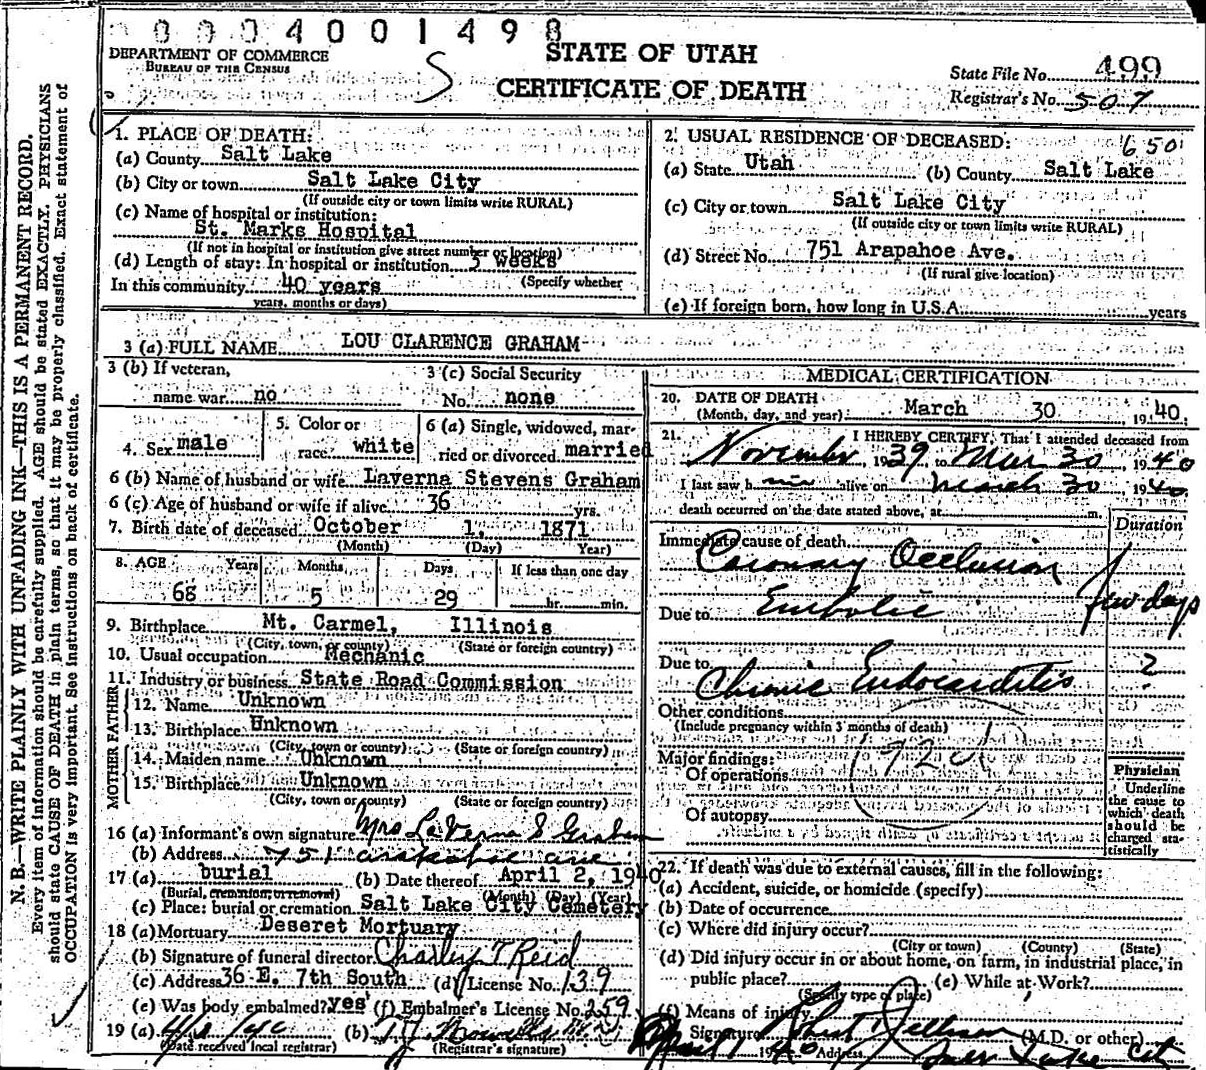 0004001498
DEPARTMENT OF COMMERCE
BUREAU OF THE CENSUS
S
STATE OF UTAH
CERTIFICATE OF DEATH
State File No. 499
Registrar's No. 507
N. B.—WRITE PLAINLY WITH UNFADING INK—THIS IS A PERMANENT RECORD.
Every item of information should be carefully supplied. AGE should be stated EXACTLY. PHYSICIANS
should state CAUSE OF DEATH in plain terms, so that it may be properly classified. Exact statement of
OCCUPATION is very important. See instructions on back of certificate.
1. PLACE OF DEATH:
(a) County Salt Lake
(b) City or town Salt Lake City
(If outside city or town limits write RURAL)
(c) Name of hospital or institution:
St. Marks Hospital
(If not in hospital or institution give street number or location)
(d) Length of stay: In hospital or institution weeks
(Specify whether
In this community 40 years
years, months or days)
2. USUAL RESIDENCE OF DECEASED: 650
(a) State Utah (b) County Salt Lake
(c) City or town Salt Lake City
(If outside city or town limits write RURAL)
(d) Street No. 751 Arapahoe Ave.
(If rural give location)
(e) If foreign born, how long in U.S.A. years
3 (a) FULL NAME LOU CLARENCE GRAHAM
3 (b) If veteran,
name war no
3 (c) Social Security
No. none
4. Sex male
5. Color or
race white
6 (a) Single, widowed, mar-
ried or divorced married
6 (b) Name of husband or wife Laverna Stevens Graham
6 (c) Age of husband or wife if alive 36 yrs.
7. Birth date of deceased October 1, 1871
(Month) (Day) Year)
8. AGE Years Months Days If less than one day
68 5 29 hr. min.
9. Birthplace Mt. Carmel, Illinois
(City, town, or county) (State or foreign country)
10. Usual occupation Mechanic
11. Industry or business State Road Commission
FATHER
12. Name Unknown
13. Birthplace Unknown
(City, town or county) (State or foreign country)
MOTHER
14. Maiden name Unknown
15. Birthplace Unknown
(City, town or county) (State or foreign country)
16 (a) Informant's own signature Mrs LaVerna S Graham
(b) Address 751 arapahoe ave
17 (a) burial (b) Date thereof April 2, 1940
(Burial, cremation or removal) (Month) (Day) (Year)
(c) Place: burial or cremation Salt Lake City Cemetery
18 (a) Mortuary Deseret Mortuary
(b) Signature of funeral director Charley T Reid
(c) Address 36 E. 7th South (d) License No. 139
(e) Was body embalmed? yes (f) Embalmer's License No. 259
19 (a) (b)
(Date received local registrar) (Registrar's signature)
MEDICAL CERTIFICATION
20. DATE OF DEATH
(Month, day, and year) March 30 1940.
21. I HEREBY CERTIFY, That I attended deceased from
November 1939 to Mar 30, 1940
I last saw him alive on March 30 1940.
death occurred on the date stated above, at m.
Duration
Immediate cause of death
Coronary Occlusion few days
Due to Embolic
Due to
Chronic Endocarditis ?
Other conditions
(Include pregnancy within 3 months of death)
Major findings:
Of operations
Of autopsy
Physician
Underline
the cause to
which death
should be
charged sta-
tistically
22. If death was due to external causes, fill in the following:
(a) Accident, suicide, or homicide (specify)
(b) Date of occurrence
(c) Where did injury occur?
(City or town) (County) (State)
(d) Did injury occur in or about home, on farm, in industrial place, in
public place? (e) While at Work?
(Specify type of place)
(f) Means of injury
Signature (M.D. or other)
April 1 1940 Address Salt Lake City